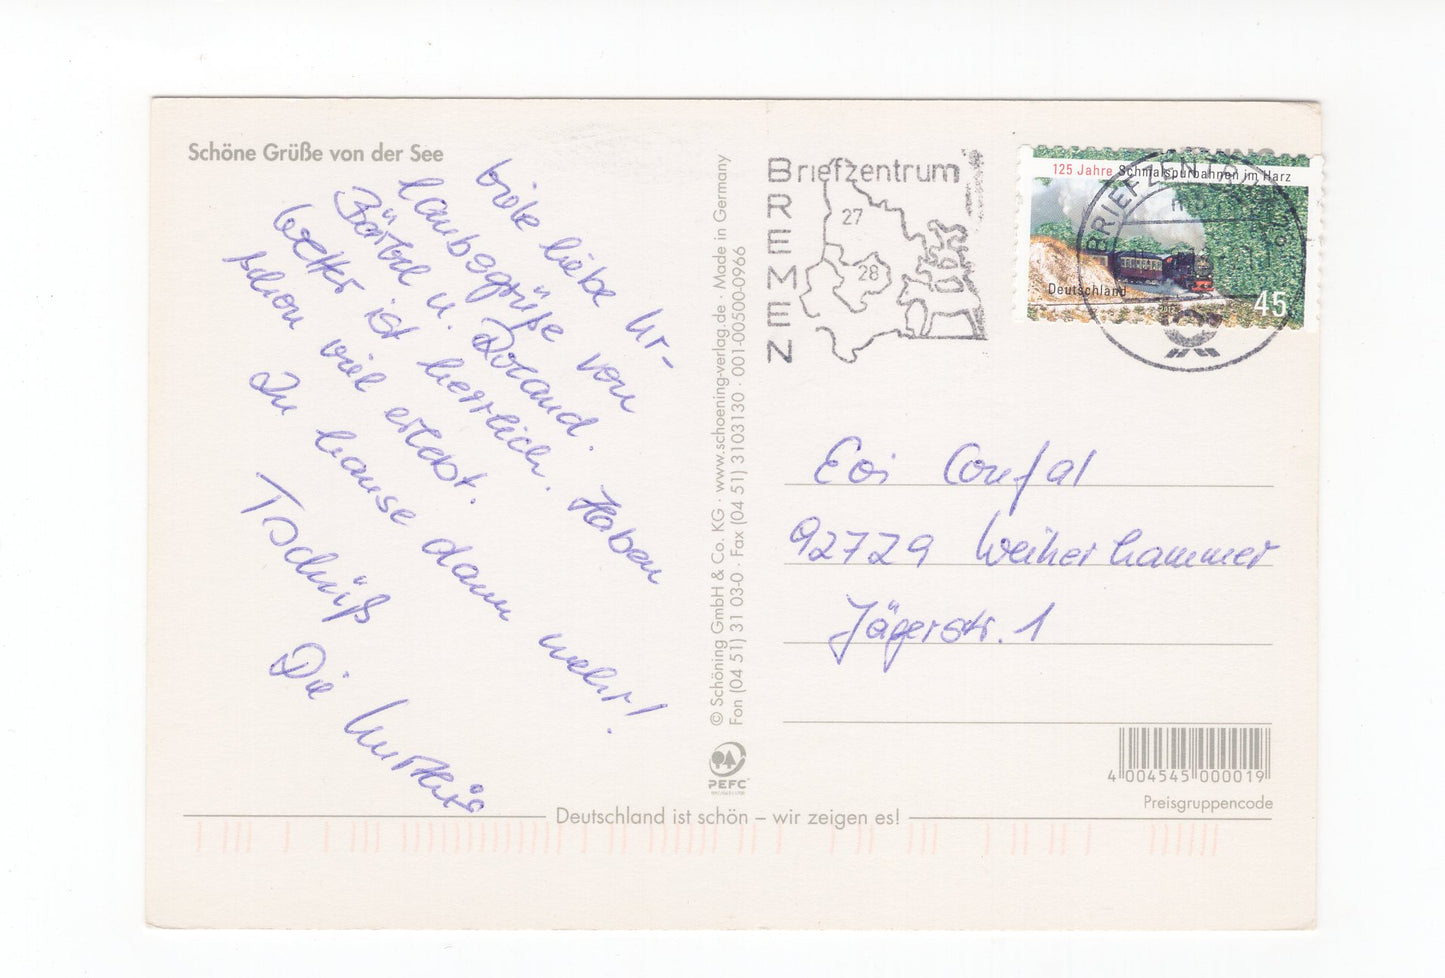 Schöne Grüße von der See
viele liebe Ur-
laubsgrüße von
Bärbel u. Roland.
Wetter ist herrlich. Haben
schon viel erlebt.
Zu hause dann mehr!
Tschüß
Die
© Schöning GmbH & Co. KG · www.schoening-verlag.de · Made in Germany
Fon (04 51) 31 03-0 · Fax (04 51) 3103130 · 001-00500-0966
PEFC
Briefzentrum
BREMEN
27
28
125 Jahre Schmalspurbahnen im Harz
Deutschland
45
BRIEFZEN
92729 Weiherhammer
Jägerstr. 1
4 004545 000019
Preisgruppencode
Deutschland ist schön – wir zeigen es!